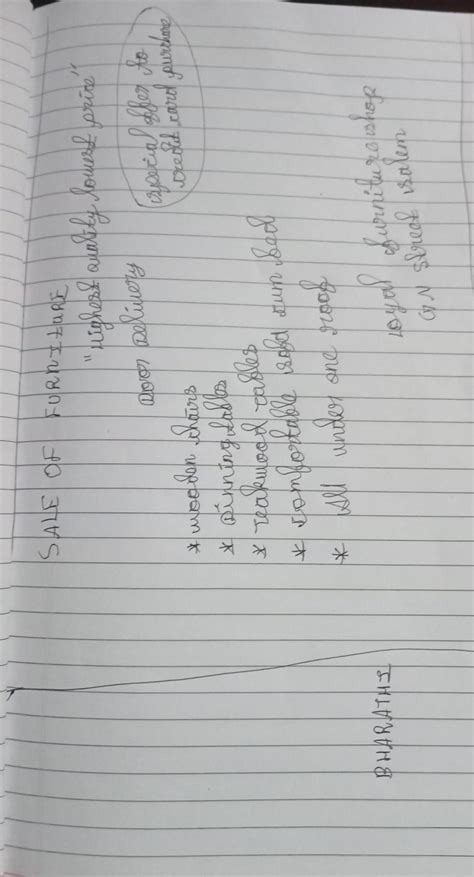 SALE OF FURNITURE
"Highest quality, lowest price"
Door Delivery
special offer to
credit card purchase
* wooden chairs
* Dinning tables
* Teakwood tables
* comfortable sofa cum bed
* All under one roof
royal furniture shop
GN street salem
BHARATHI